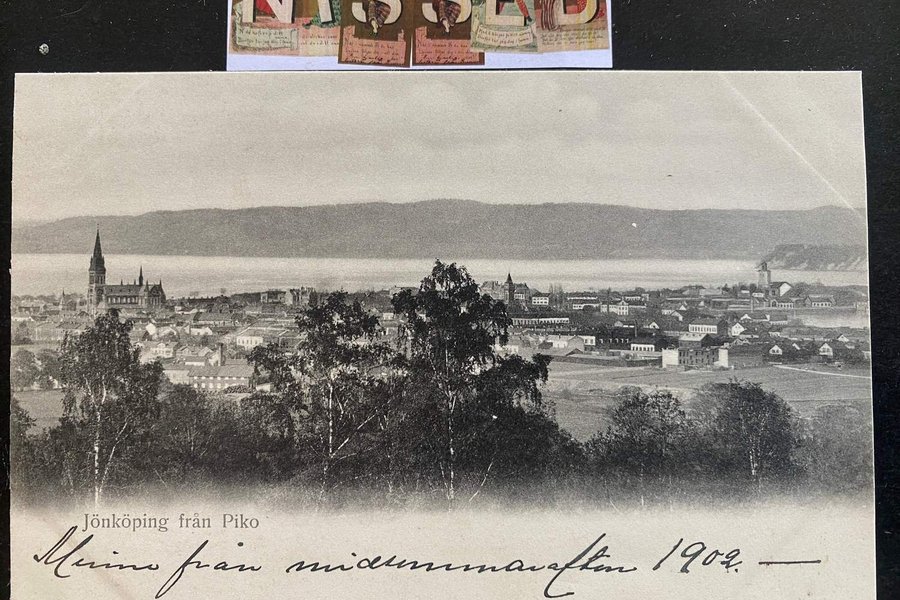 NISSED
Jönköping från Piko
Minne från midsommarafton 1902. —